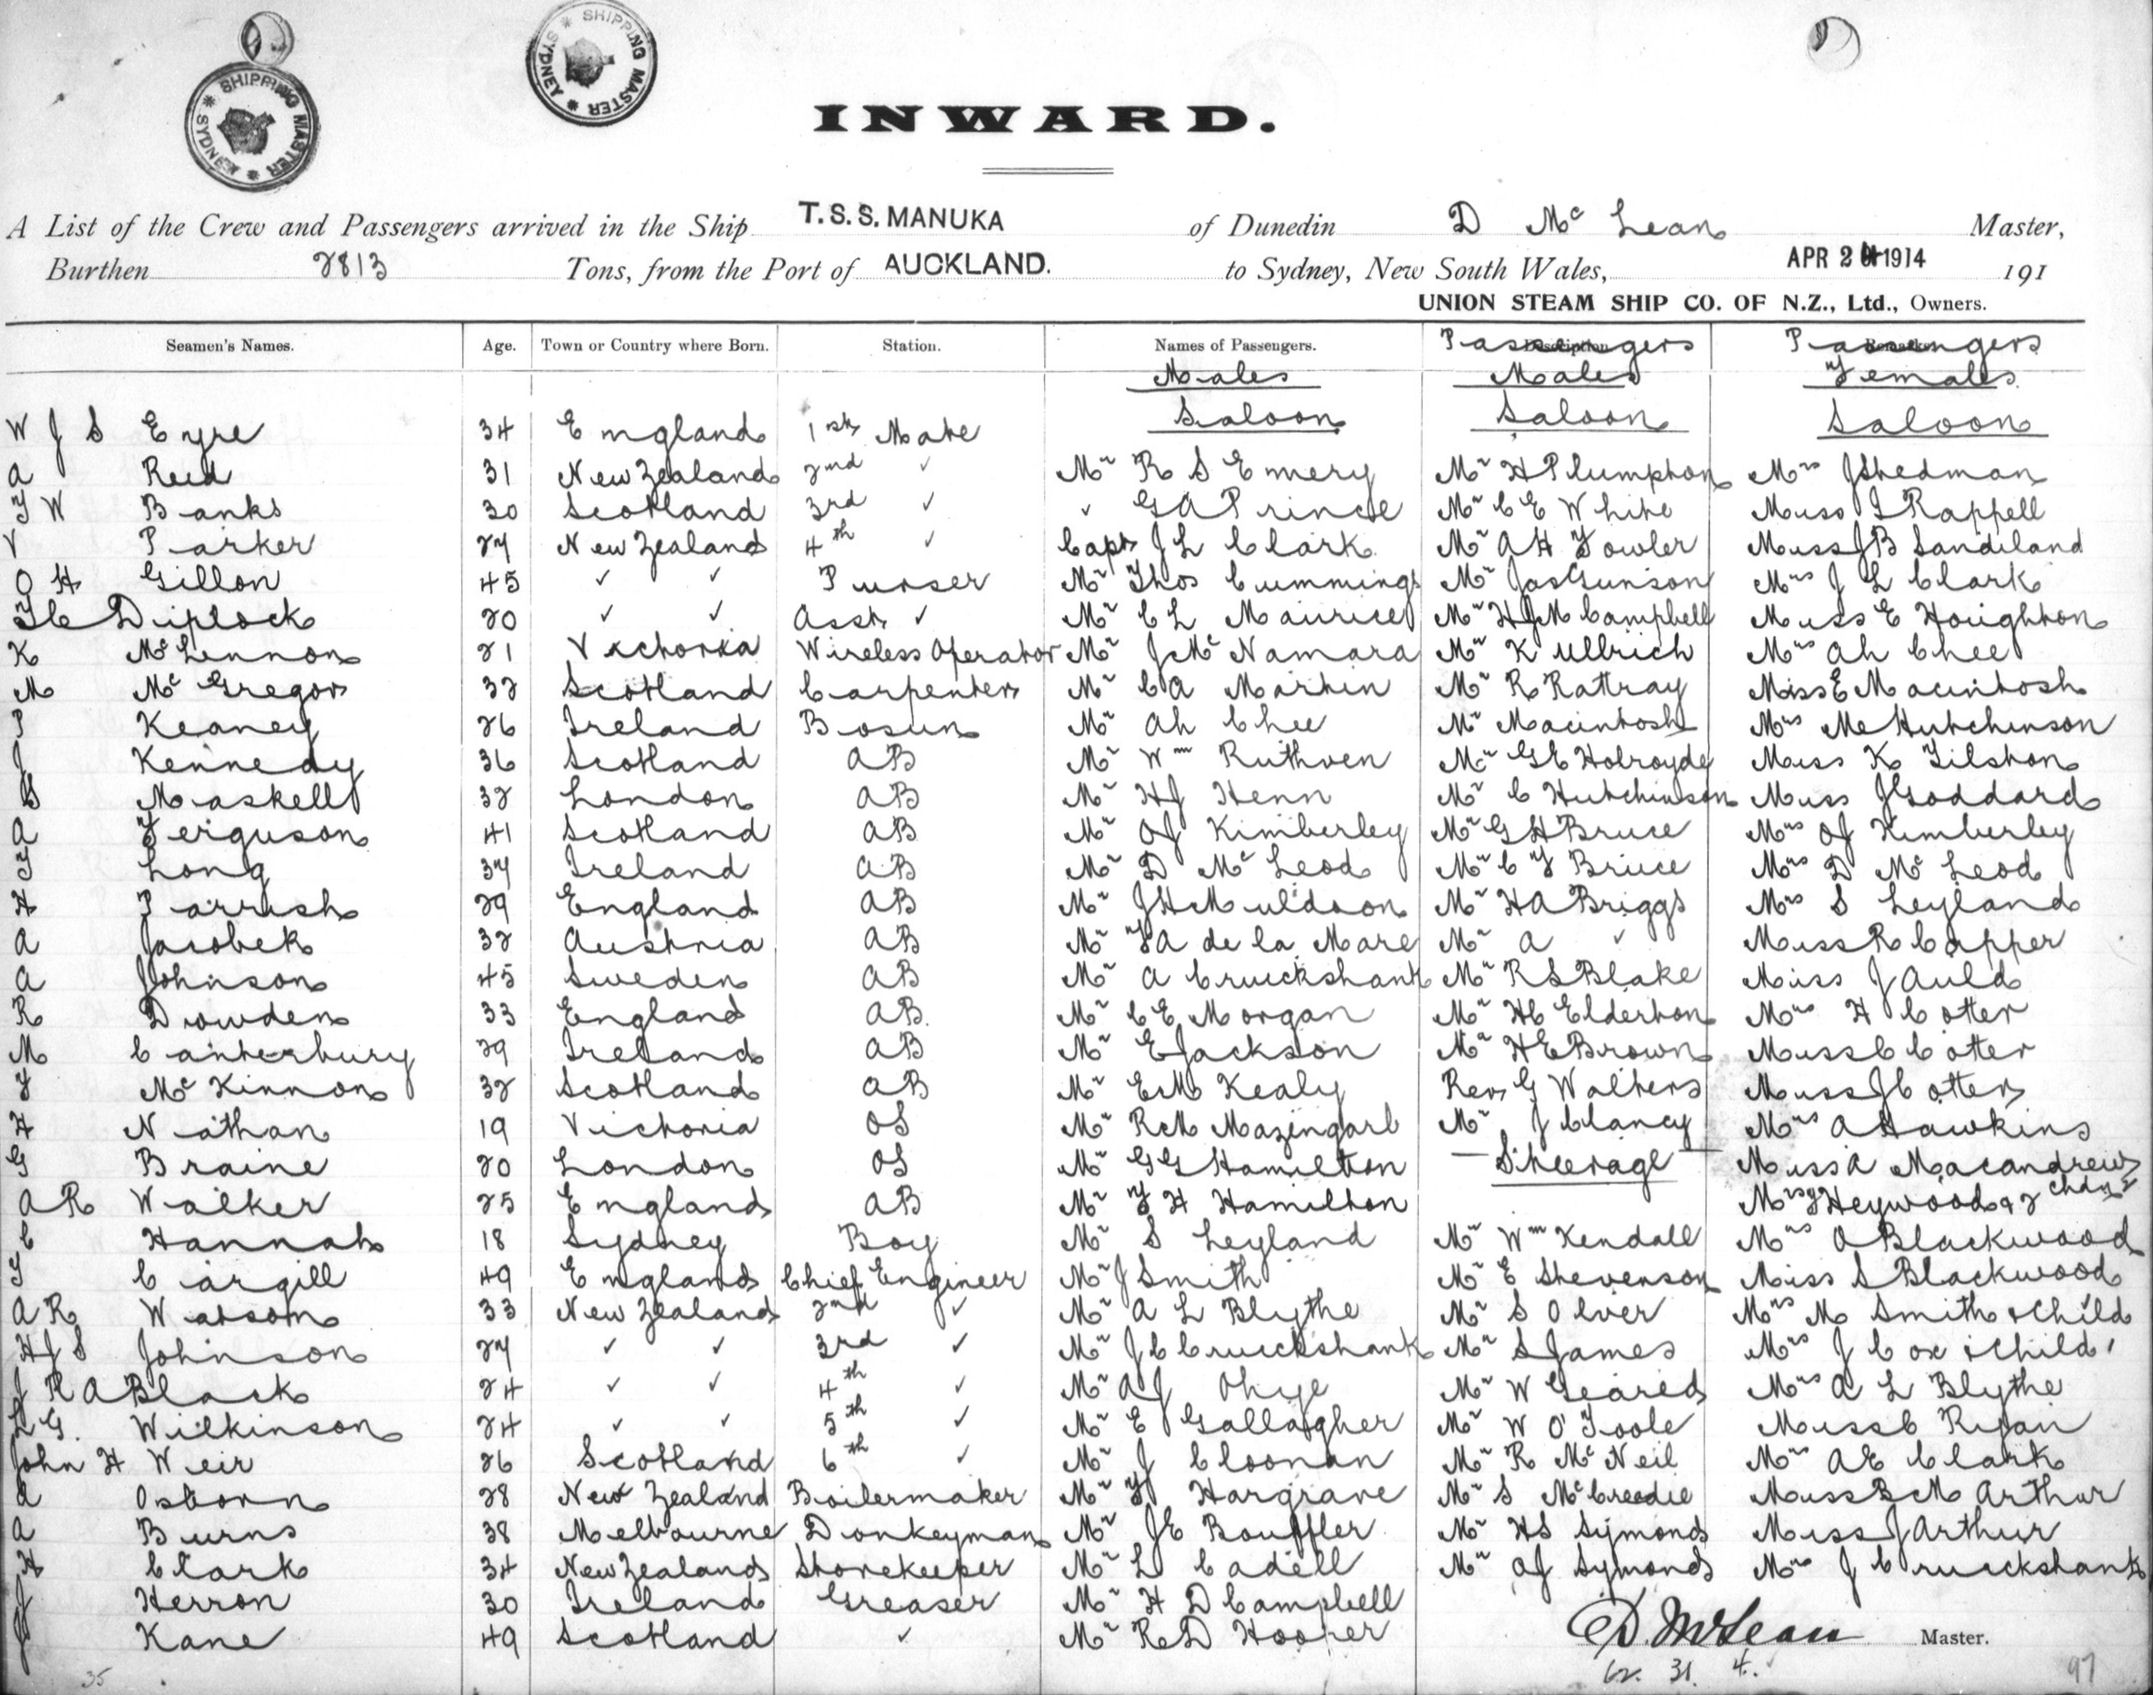 SHIPPING MASTER * SYDNEY *
SHIPPING MASTER * SYDNEY *
INWARD.
A List of the Crew and Passengers arrived in the Ship T.S.S. MANUKA of Dunedin D McLean Master,
Burthen 2813 Tons, from the Port of AUCKLAND. to Sydney, New South Wales, APR 2 1914 191
UNION STEAM SHIP CO. OF N.Z., Ltd., Owners.
Seamen's Names. Age. Town or Country where Born. Station. Names of Passengers. Passengers Passengers
Males Males Females
Saloon Saloon Saloon
W J S Eyre 34 England 1st Mate
A Reid 31 New Zealand 2nd ✓ Mr R S Emery Mr H Plumpton Mrs J Stedman
F W Banks 30 Scotland 3rd ✓ ✓ G A Prince Mr C E White Miss I Rappell
V Parker 27 New Zealand 4th ✓ Capt J L Clark Mr A H Fowler Miss J B Sandiland
O H Gillon 45 ✓ ✓ Purser Mr Thos Cummings Mr Jas Gunson Mrs J L Clark
Diplock 20 ✓ ✓ Asst ✓ Mr C L Maurice Mr H J M Campbell Miss E Houghton
K McLennon 21 Victoria Wireless Operator Mr J McNamara Mr K Ullrich Mrs Ah Chee
M McGregor 32 Scotland Carpenter Mr C A Martin Mr R Rattray Miss E Macintosh
P Keaney 26 Ireland Bosun Mr Ah Chee Mr Macintosh Mrs M C Hutchinson
J Kennedy 36 Scotland AB Mr Wm Ruthven Mr G E Holroyde Miss K Tilston
S Maskell 32 London AB Mr H J Henn Mr C Hutchinson Miss J Goddard
A Ferguson 41 Scotland AB Mr O J Kimberley Mr G H Bruce Mrs O J Kimberley
T Long 37 Ireland AB Mr D McLeod Mr C F Bruce Mrs D McLeod
H Parrish 29 England AB Mr J H Muldoon Mr H A Briggs Mrs S Leyland
A Jacobek 32 Austria AB Mr F A de la Mare Mr A ✓ Miss R Capper
A Johnson 45 Sweden AB Mr A Cruickshank Mr R S Blake Miss J Auld
R Dowden 33 England AB Mr C E Morgan Mr H C Elderton Mrs H Cotter
M Canterbury 29 Ireland AB Mr E Jackson Mr H E Brown Miss C Cotter
F McKinnon 32 Scotland AB Mr E M Kealy Rev G Walters Miss J Cotter
H Nathan 19 Victoria OS Mr R M Mazengarb Mr J Clancy Mrs A Hawkins
G Braine 20 London OS Mr G G Hamilton Steerage Miss A Macandrew
A R Walker 25 England AB Mr F H Hamilton Mrs Heywood & 2 chdn
C Hannah 18 Sydney Boy Mr S Leyland Mr Wm Kendall Mrs O Blackwood
T Cargill 49 England Chief Engineer Mr J Smith Mr E Stevenson Miss S Blackwood
A R Watson 33 New Zealand 2nd ✓ Mr A L Blythe Mr S Olver Mrs M Smith & Child
H J S Johnson 27 ✓ ✓ 3rd ✓ Mr J C Cruickshank Mr S James Mrs J Cox & Child
J R A Black 24 ✓ ✓ 4th ✓ Mr A J Ohye Mr W Geared Mrs A L Blythe
L G. Wilkinson 24 ✓ ✓ 5th ✓ Mr E Gallagher Mr W O'Toole Miss C Ryan
John H Weir 26 Scotland 6th ✓ Mr J Cloonan Mr R McNeil Mrs A E Clark
A Osborn 28 New Zealand Boilermaker Mr F Hargrave Mr S McCreedie Miss B M Arthur
A Burns 38 Melbourne Donkeyman Mr J E Bouffler Mr H S Symonds Miss J Arthur
H Clark 34 New Zealand Storekeeper Mr L Cadell Mr O J Symonds Mrs J Cruickshank
J Herron 30 Ireland Greaser Mr H D Campbell
Kane 49 Scotland ✓ Mr R D Hooper D. McLean Master.
35 62. 31. 4. 97